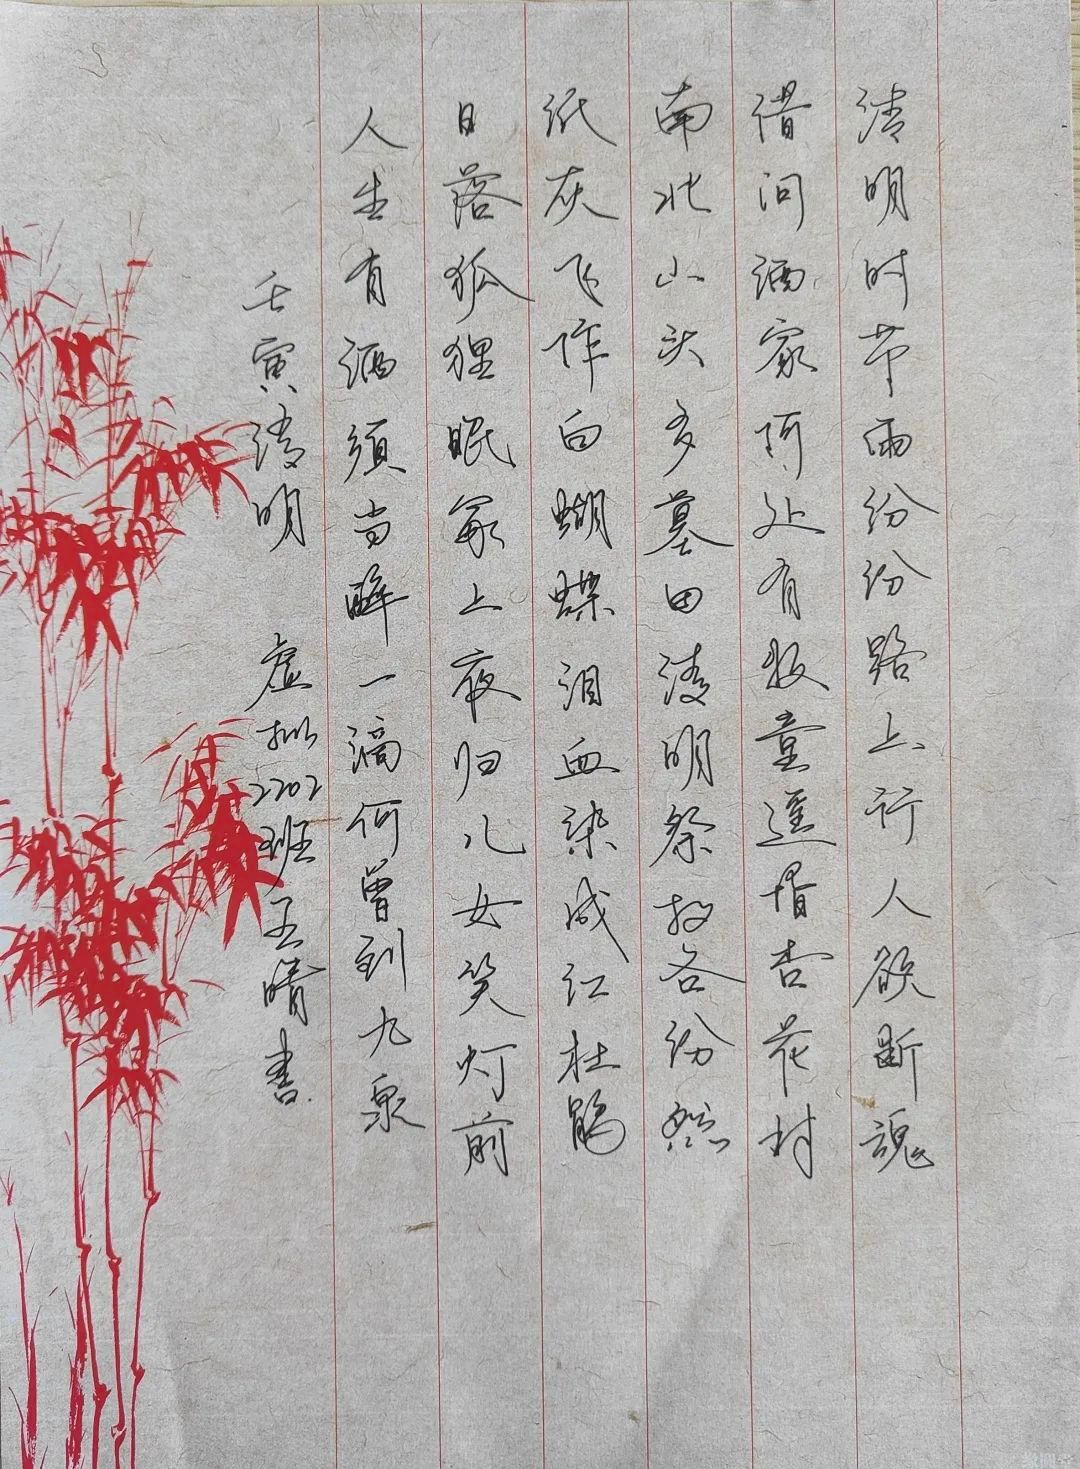 清明时节雨纷纷路上行人欲断魂
借问酒家何处有牧童遥指杏花村
南北山头多墓田清明祭扫各纷然
纸灰飞作白蝴蝶泪血染成红杜鹃
日落狐狸眠冢上夜归儿女笑灯前
人生有酒须当醉一滴何曾到九泉
壬寅清明 虚拟2202班王晴书